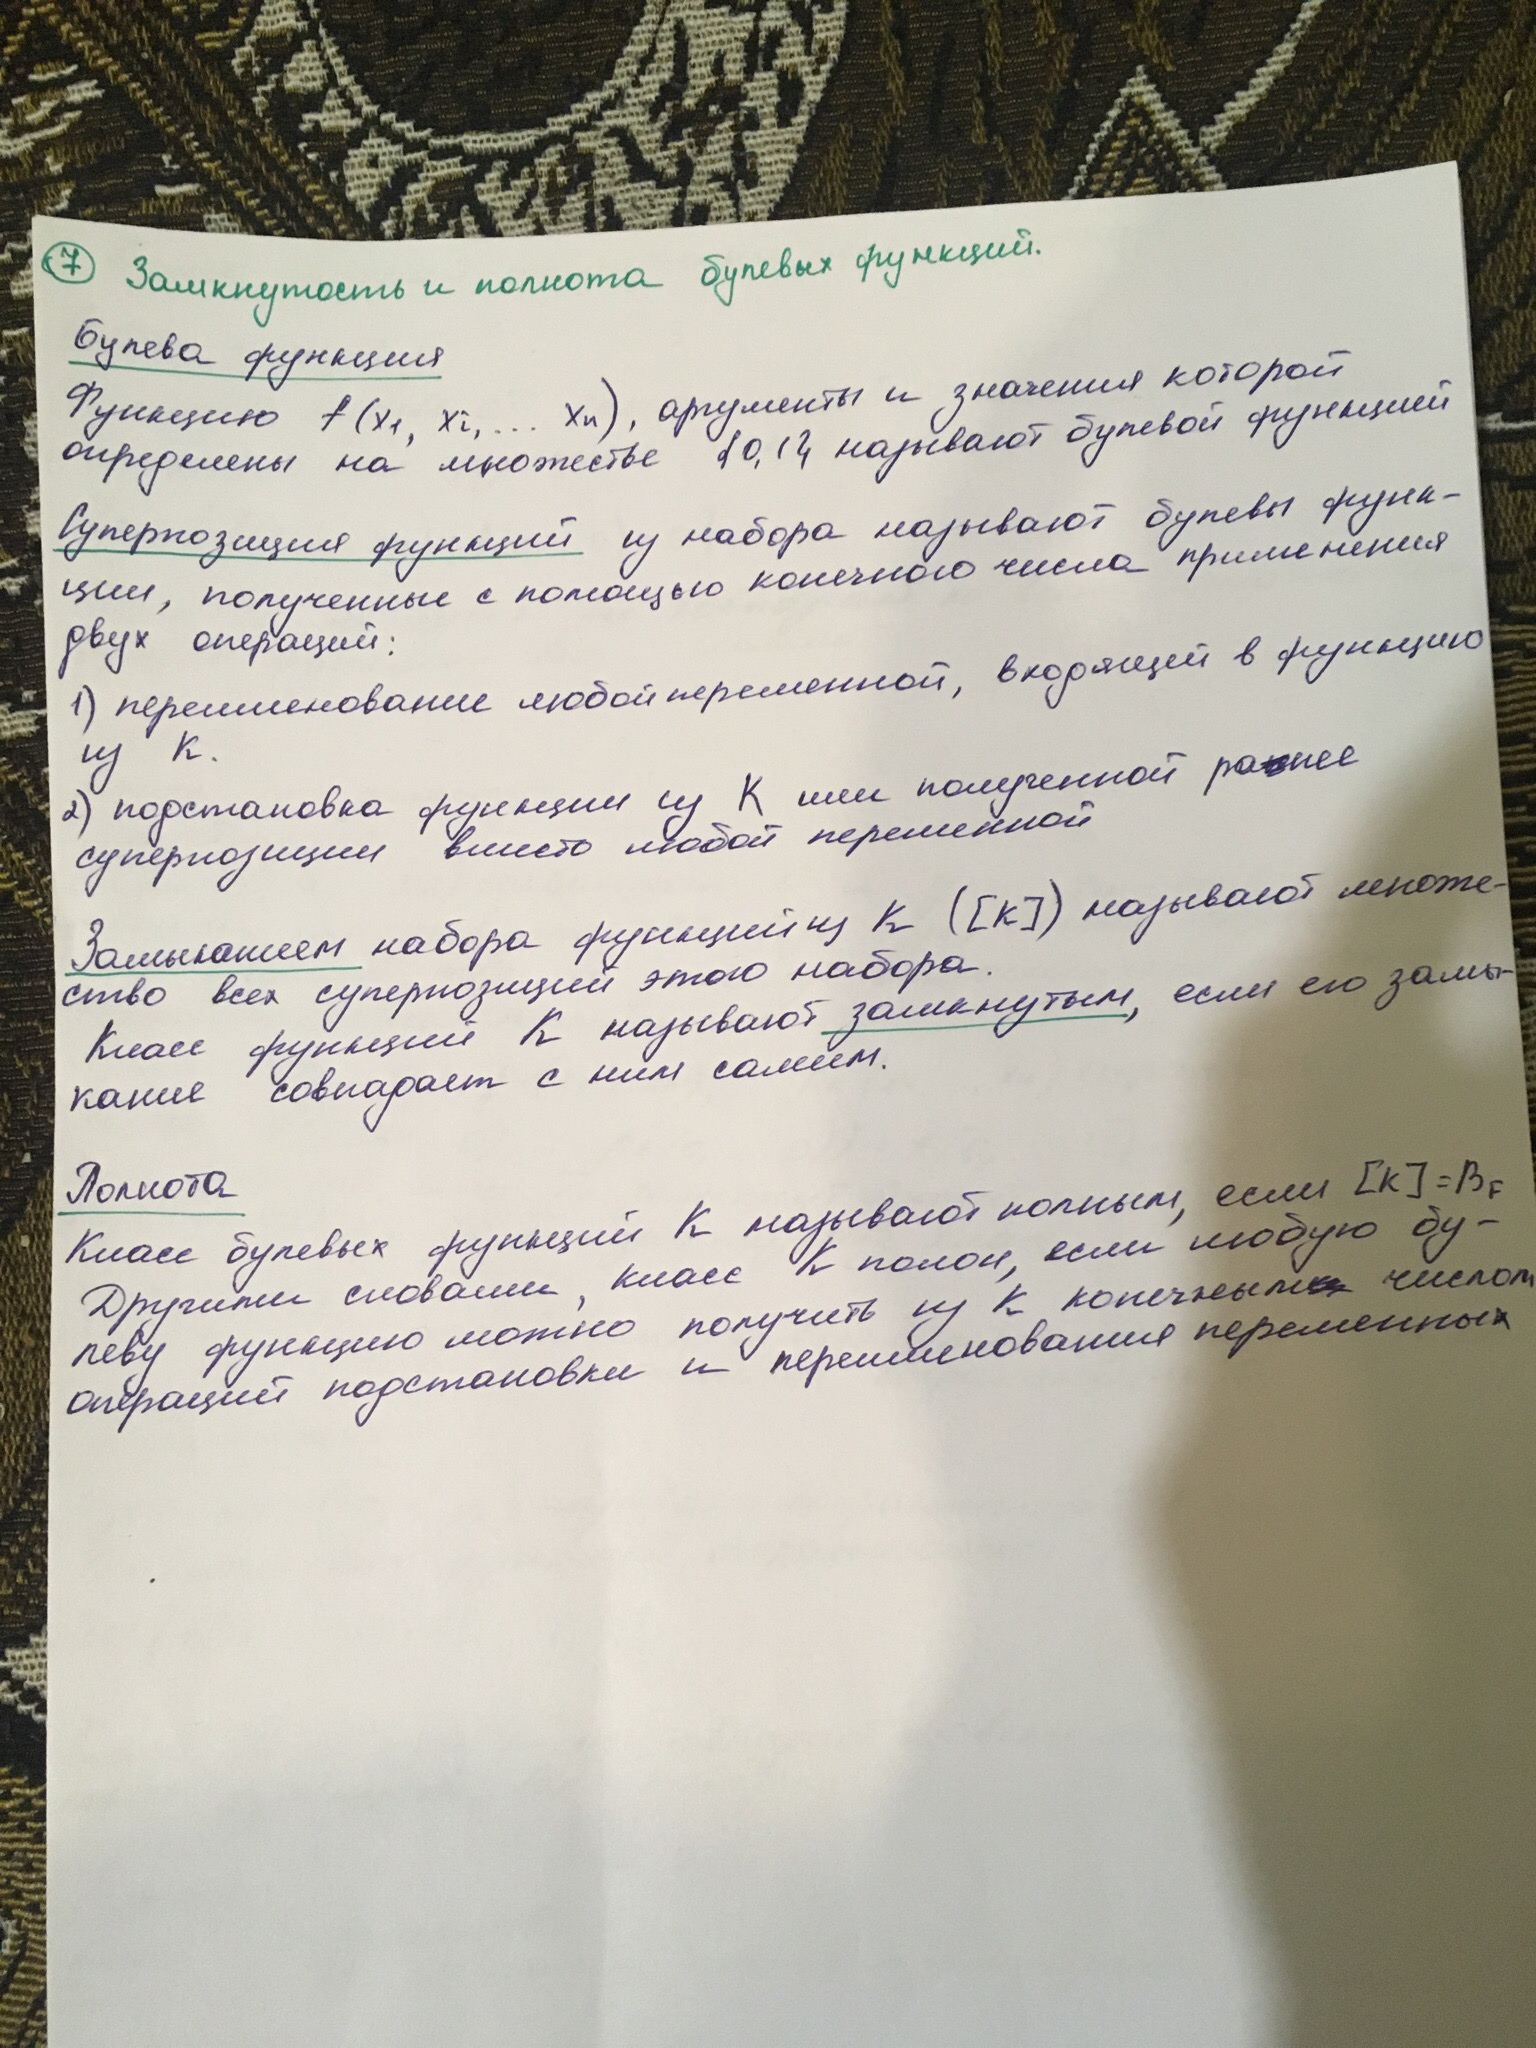 7 Замкнутость и полнота булевых функций.
Булева функция
Функцию f(x₁, x₂, ... xₙ), аргументы и значения которой
определены на множестве {0,1} называют булевой функцией
Суперпозиция функций из набора называют булевы функ-
ции, полученные с помощью конечного числа применения
двух операций:
1) переименование любой переменной, входящей в функцию
из K.
2) подстановка функции из K или полученной ранее
суперпозиции вместо любой переменной
Замыканием набора функций из K ([K]) называют множе-
ство всех суперпозиций этого набора.
Класс функций K называют замкнутым, если его замы-
кание совпадает с ним самим.
Полнота
Класс булевых функций K называют полным, если [K]=B_F
Другими словами, класс K полон, если любую бу-
леву функцию можно получить из K конечным числом
операций подстановки и переименования переменных